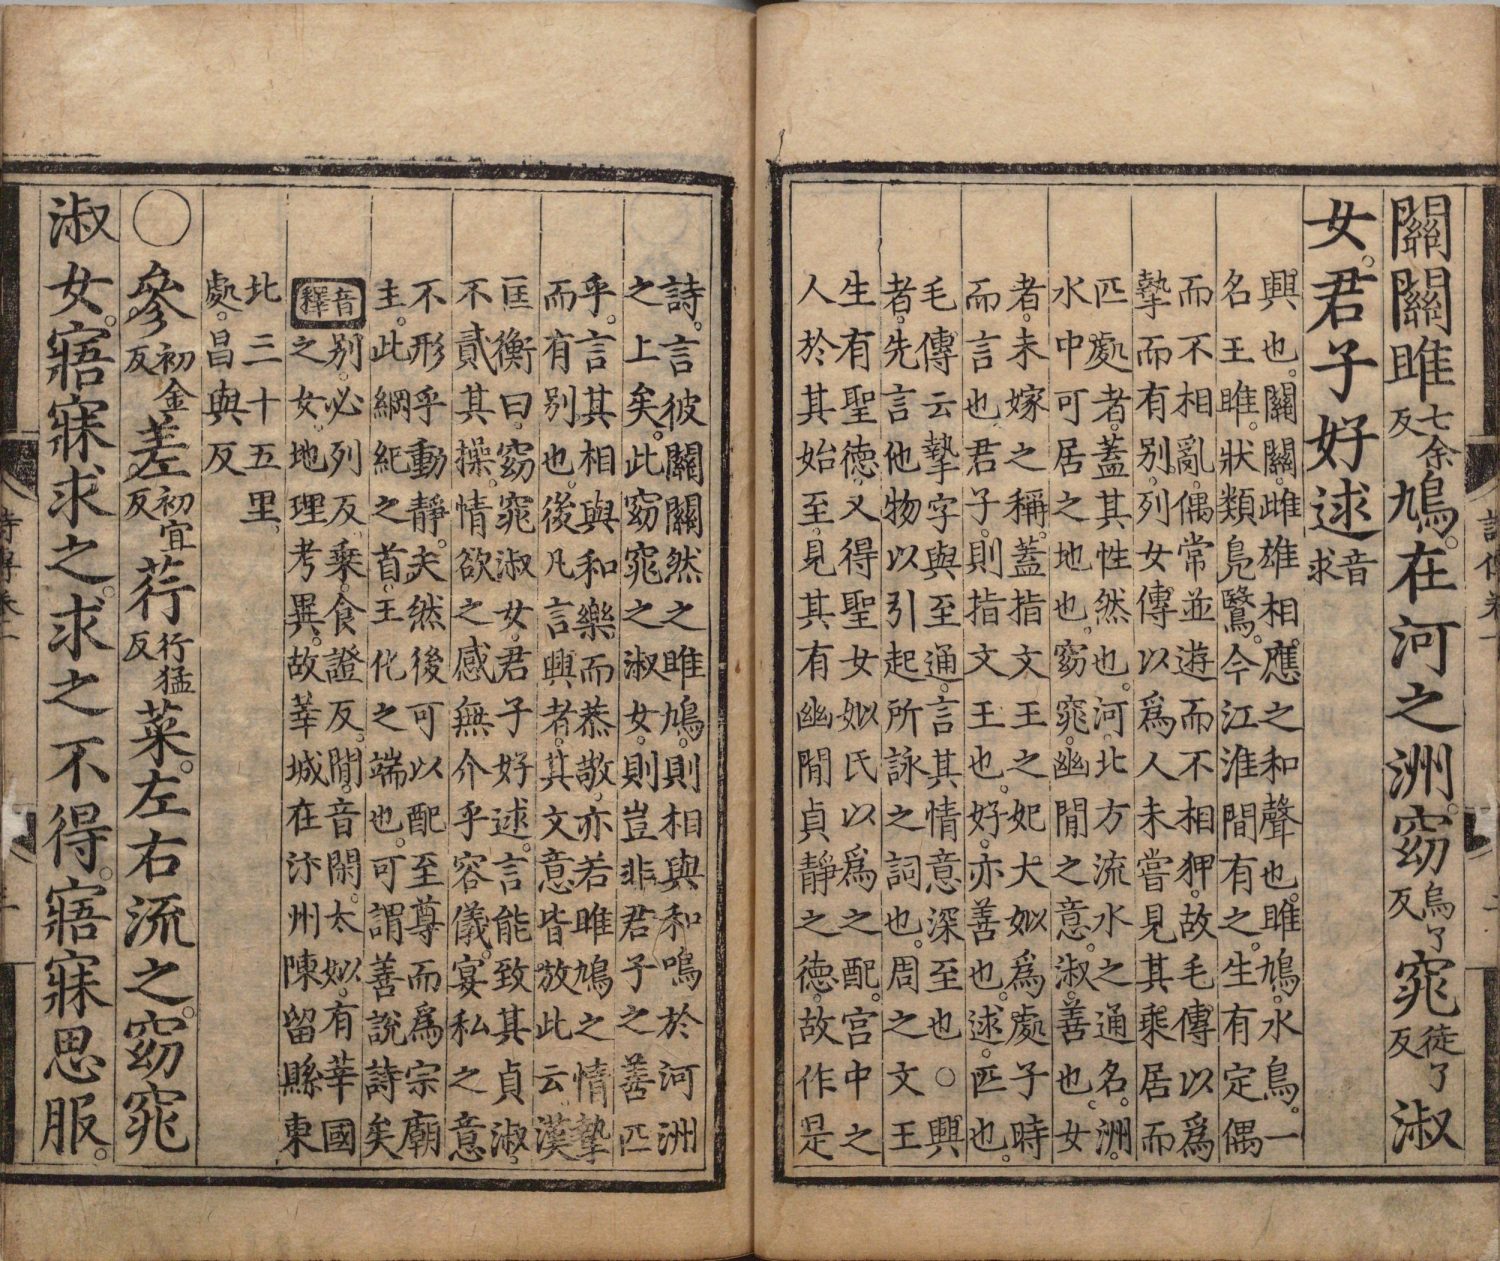 關關雎七余反鳩。在河之洲。窈烏了反窕徒了反淑
女。君子好逑音求
興也。關關。雌雄相應之和聲也。雎鳩。水鳥。一
名王雎。狀類鳧鷖。今江淮間有之。生有定偶
而不相亂。偶常並遊而不相狎。故毛傳以爲
摯而有别。列女傳以爲人未嘗見其乘居而
匹處者。蓋其性然也。河。北方流水之通名。洲。
水中可居之地也。窈窕。幽閒之意。淑。善也。女
者。未嫁之稱。蓋指文王之妃太姒爲處子時
而言也。君子。則指文王也。好。亦善也。逑。匹也。
毛傳云摯字與至通。言其情意深至也○興
者。先言他物以引起所詠之詞也。周之文王
生有聖德。又得聖女姒氏以爲之配。宮中之
人於其始至。見其有幽閒貞靜之德。故作是
詩。言彼關關然之雎鳩。則相與和鳴於河洲
之上矣。此窈窕之淑女。則豈非君子之善匹
乎。言其相與和樂而恭敬。亦若雎鳩之情摯
而有别也。後凡言興者。其文意皆放此云。漢
匡衡曰。窈窕淑女。君子好逑。言能致其貞淑。
不貳其操。情欲之感無介乎容儀。宴私之意
不形乎動靜。夫然後可以配至尊而爲宗廟
主。此綱紀之首。王化之端也。可謂善說詩矣
音釋别。必列反。乘。食證反。閒。音閑。太姒。有莘國
之女。地理考異。故莘城在汴州陳留縣東
北三十五里。
處。昌與反
○參初金反差初宜反荇行猛反菜。左右流之。窈窕
淑女。寤寐求之。求之不得。寤寐思服。